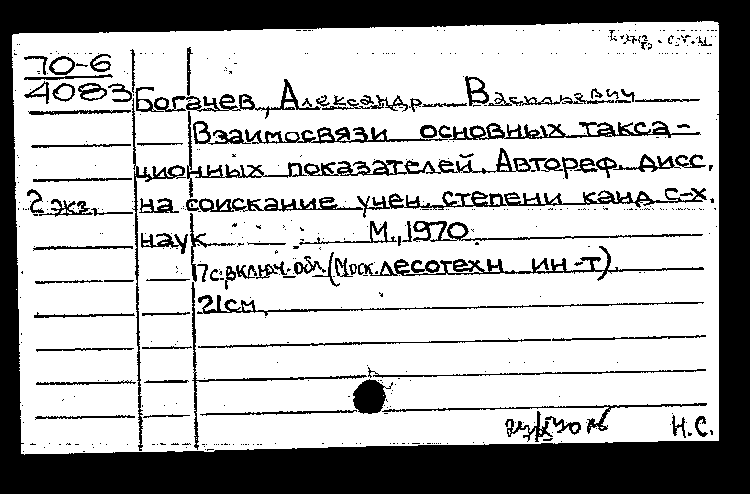 70-6
4083
Богачев, Александр Васильевич
Взаимосвязи основных такса-
ционных показателей. Автореф. дисс.
2 экз. на соискание учен. степени канд с-х.
наук М., 1970.
17с. включ. обл. (Моск. лесотехн. ин-т).
21см.
Н.С.